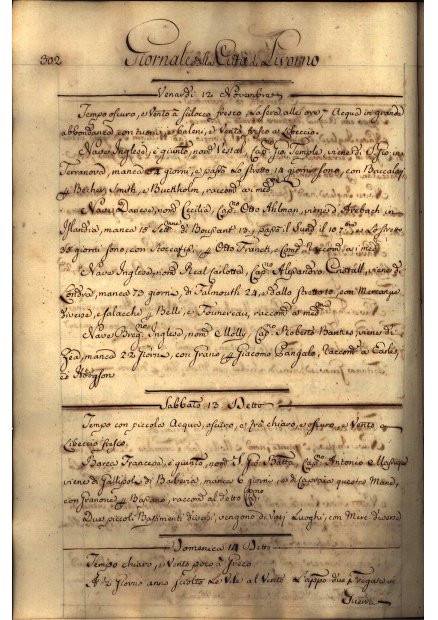 302
Giornale della Città di Livorno
Venardi 12 Novembre
Tempo oscuro, e Vento à silocco fresco, La sera alle ore 7 Acqua in grande
abbondanza con tuoni, e baleni, e Vento fresco a Libeccio.
Nave Inglese, è giunta, nom Vestal, Cap Gio Temple, viene di S Gio, in
Terranova, manca giorni, e passò Lo stretto 14 giorni sono, con Baccalari
Becher, Smith, e Buckholm, raccom a med
Nave Danese, nom Cecilia, Cap Otto Ahlman, viene d'
Islanda, manca 15 di 13, passò il Sund il 10 e Lo stretto
giorni sono, con Stoccafis Otto Franck, e Comp Raccom a med
Nave Inglese, nom Real Carlotta, Cap Alexandro viene di
Londra, manca 73 giorni, di Falmouth 24, e dallo stretto 10, con Mercanzie
diverse, e salacche Bell, e Fonnereau, raccom a med
Nave Inglese, nom Molly, Cap Roberto viene di
Zea, manca 22 Giorni, con Grano Giacomo Pangalo, Raccom a Earle,
e Hodgson
Sabbato 13 Detto
Tempo con piccola Acqua, oscuro, e frà chiaro, e oscuro, e Vento a
Libeccio fresco.
Barca Francese, è giunta, nom S Gio Batta, Cap Antonio
viene di Gallipoli di Barberia, manca 6 giorni, e di Capraia questa Mane,
con Granone Bassano, raccom al detto Cap
Due piccoli Bastimenti diversi, vengono da Varj Luoghi, con Merc diverse
Domenica 14 Detto
Tempo chiaro, e Vento poco a Greco.
A ½ Giorno anno sciolto Le Vele al Vento due Fregate in
Guerra